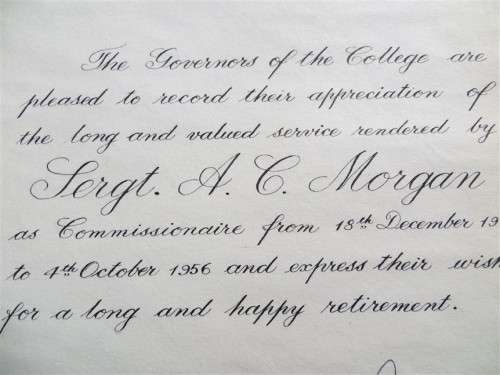 The Governors of the College are
pleased to record their appreciation of
the long and valued service rendered by
Sergt. A. C. Morgan
as Commissionaire from 18th December 19
to 4th October 1956 and express their wish
for a long and happy retirement.